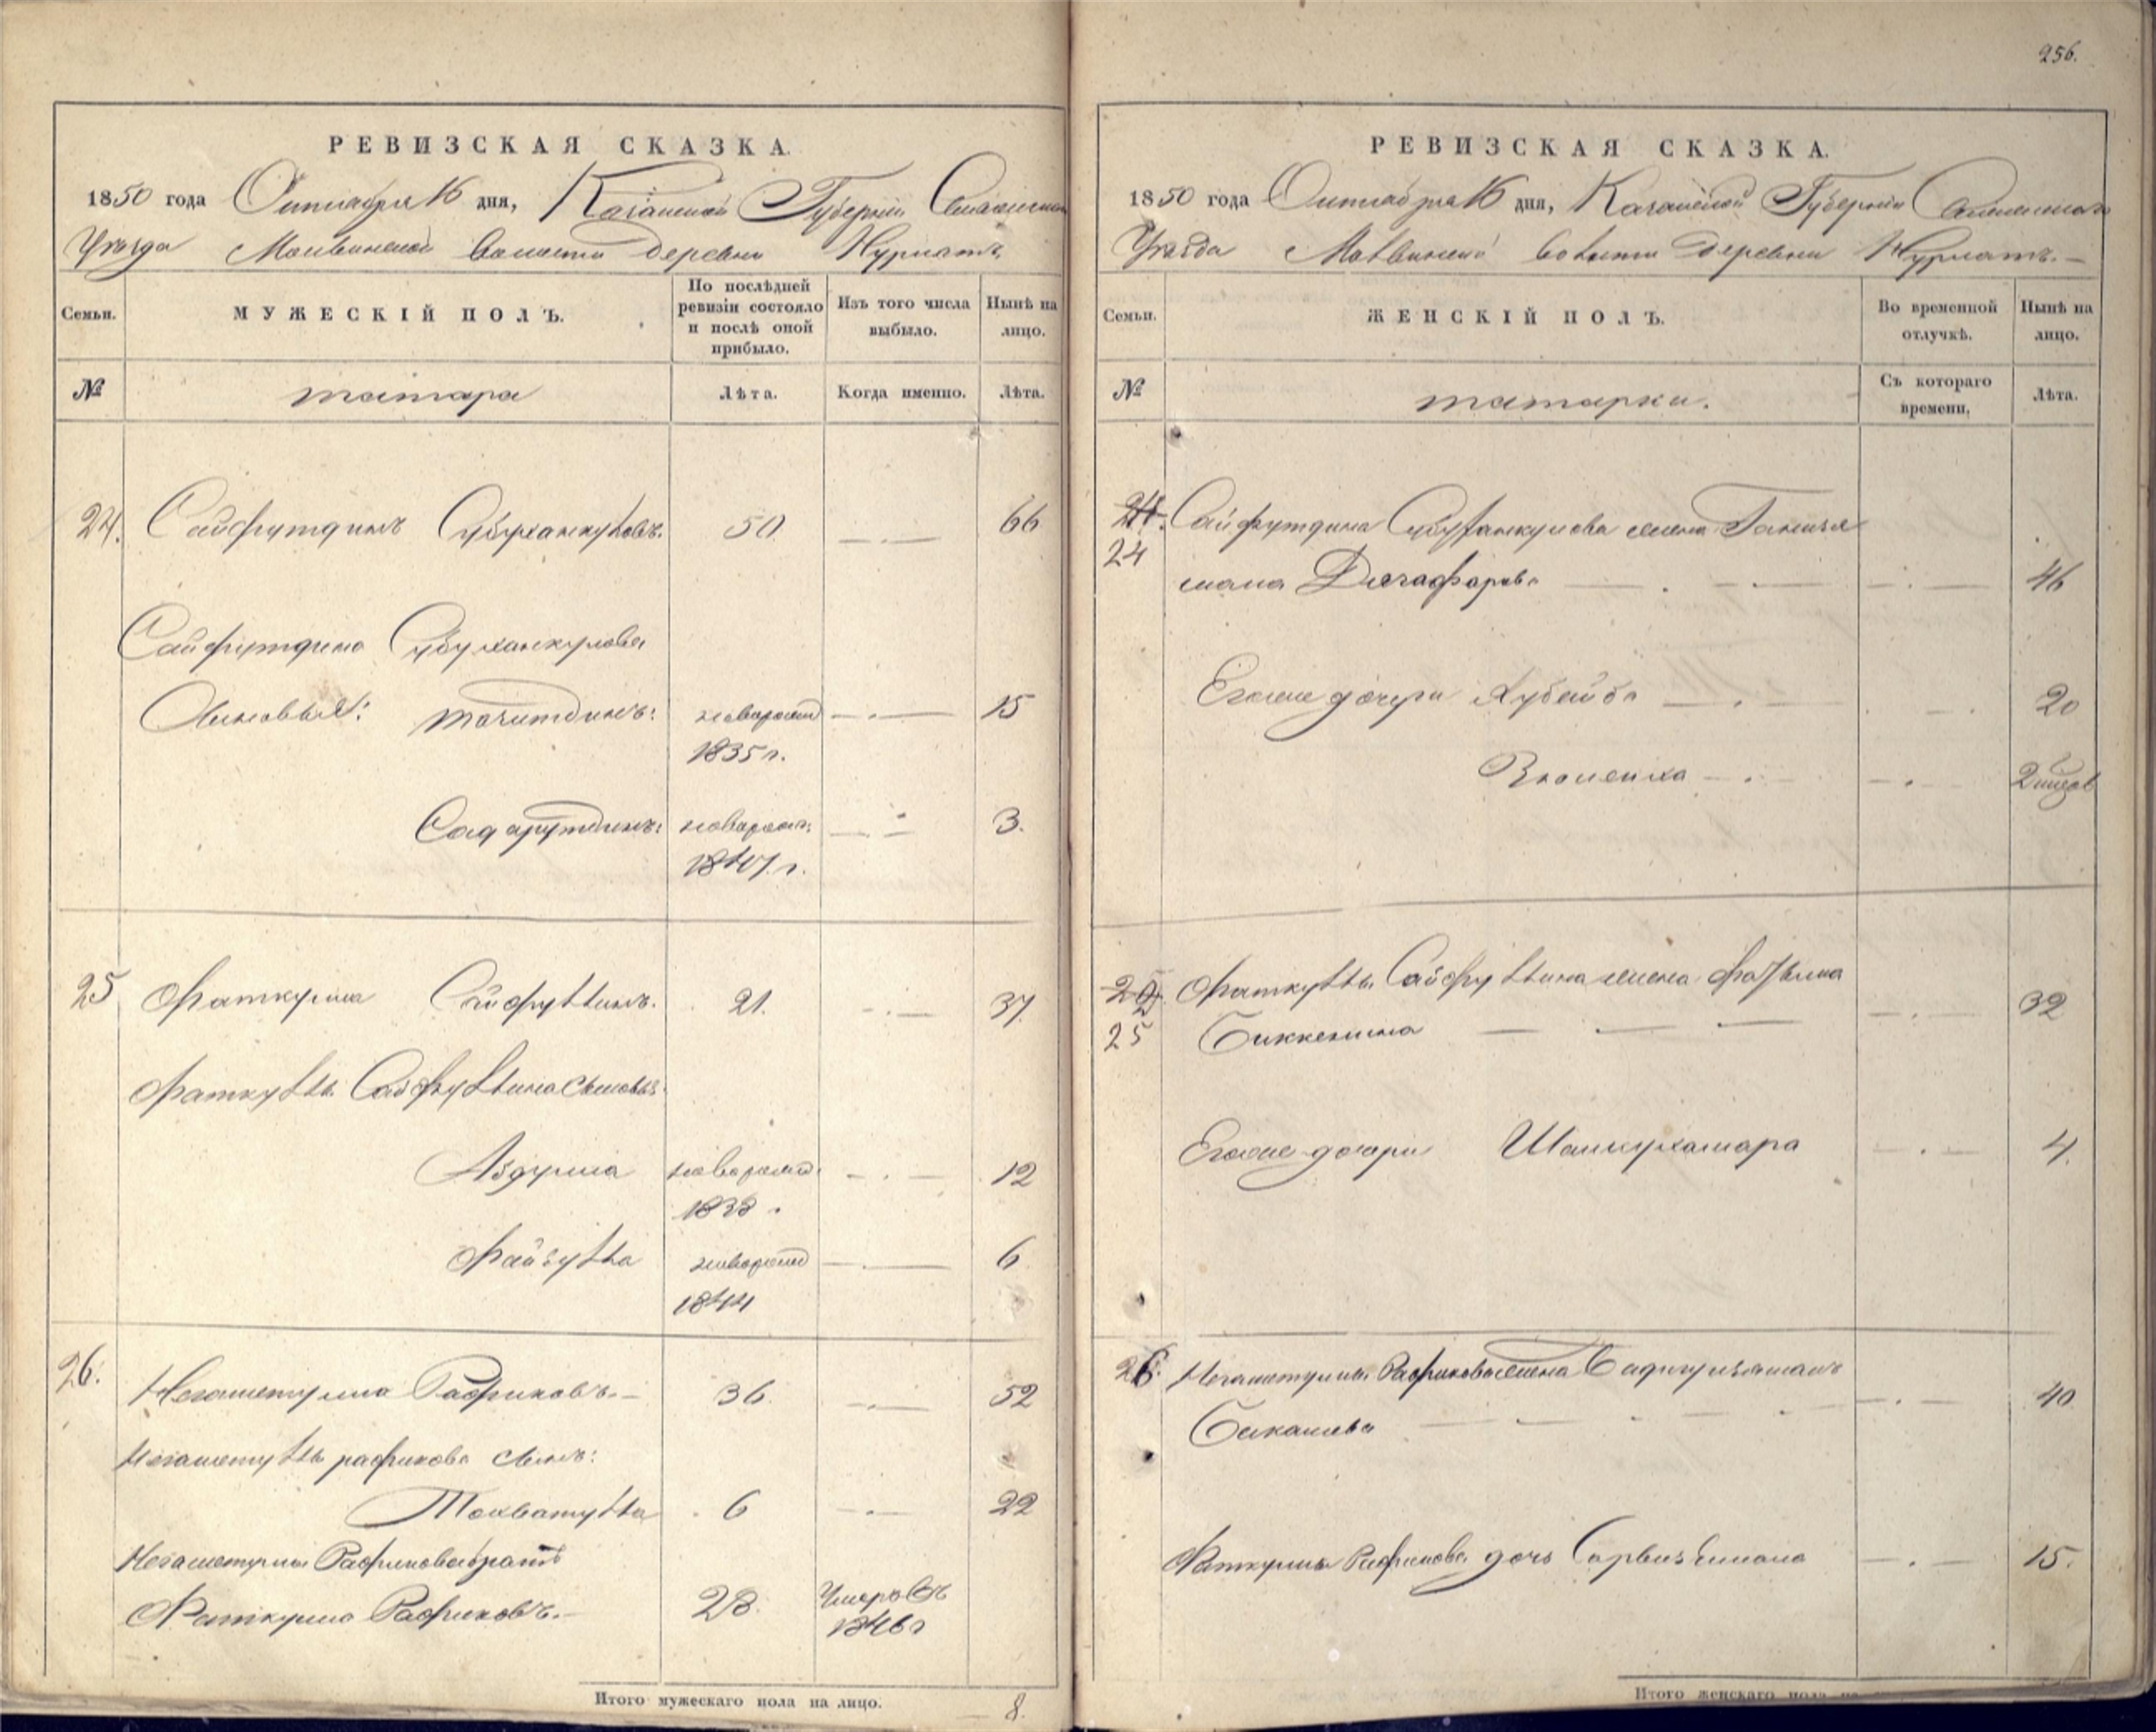 256.
РЕВИЗСКАЯ СКАЗКА.
1850 года Октября 16 дня, Казанской Губернии Спасскаго
Уезда Волости деревни Нурлатъ
Семьи.
МУЖЕСКІЙ ПОЛЪ.
По послѣдней ревизіи состояло и послѣ оной прибыло.
Изъ того числа выбыло.
Нынѣ на лицо.
№
татара
Лѣта.
Когда именно.
Лѣта.
24. Сайфутдинъ Субханкуловъ. 50 66
Сайфутдина Субханкулова
Сыновья: Тазитдинъ: новорожд 15
1835 г.
Садрутдинъ: новорожд: 3.
1847 г.
25 Фаткулла Сайфуллинъ. 21. 37.
Фаткуллы Сайфуллина сыновья:
Абдулла новорожд. 12
1838.
Файзулла новорожд 6
1844
26. Негаметулла Рафиковъ. 36. 52
Негаметуллы рафикова сынъ:
Тохватулла 6 22
Негаметуллы Рафикова братъ
Фаткулла Рафиковъ. 28. Умеръ въ
1846 г
Итого мужескаго пола на лицо. 8.
РЕВИЗСКАЯ СКАЗКА.
1850 года Октября 16 дня, Казанской Губернии Спасскаго
Уезда волости Деревни Нурлатъ.
Семьи.
ЖЕНСКІЙ ПОЛЪ.
Во временной отлучкѣ.
Нынѣ на лицо.
№
татарки.
Съ котораго времени.
Лѣта.
24. Сайфутдина Субханкулова жена
24 Джагфарова 46
Егоже дочери Хубейба 20
Зюлейха
25. Фаткуллы Сайфуллина жена Фатыма 32
25 Биккенина
Егоже дочери Шамсукамара 4.
26. Негаметуллы Рафикова жена
Бикашева 40
Фаткуллы Рафикова дочь 15.
Итого женскаго пола на